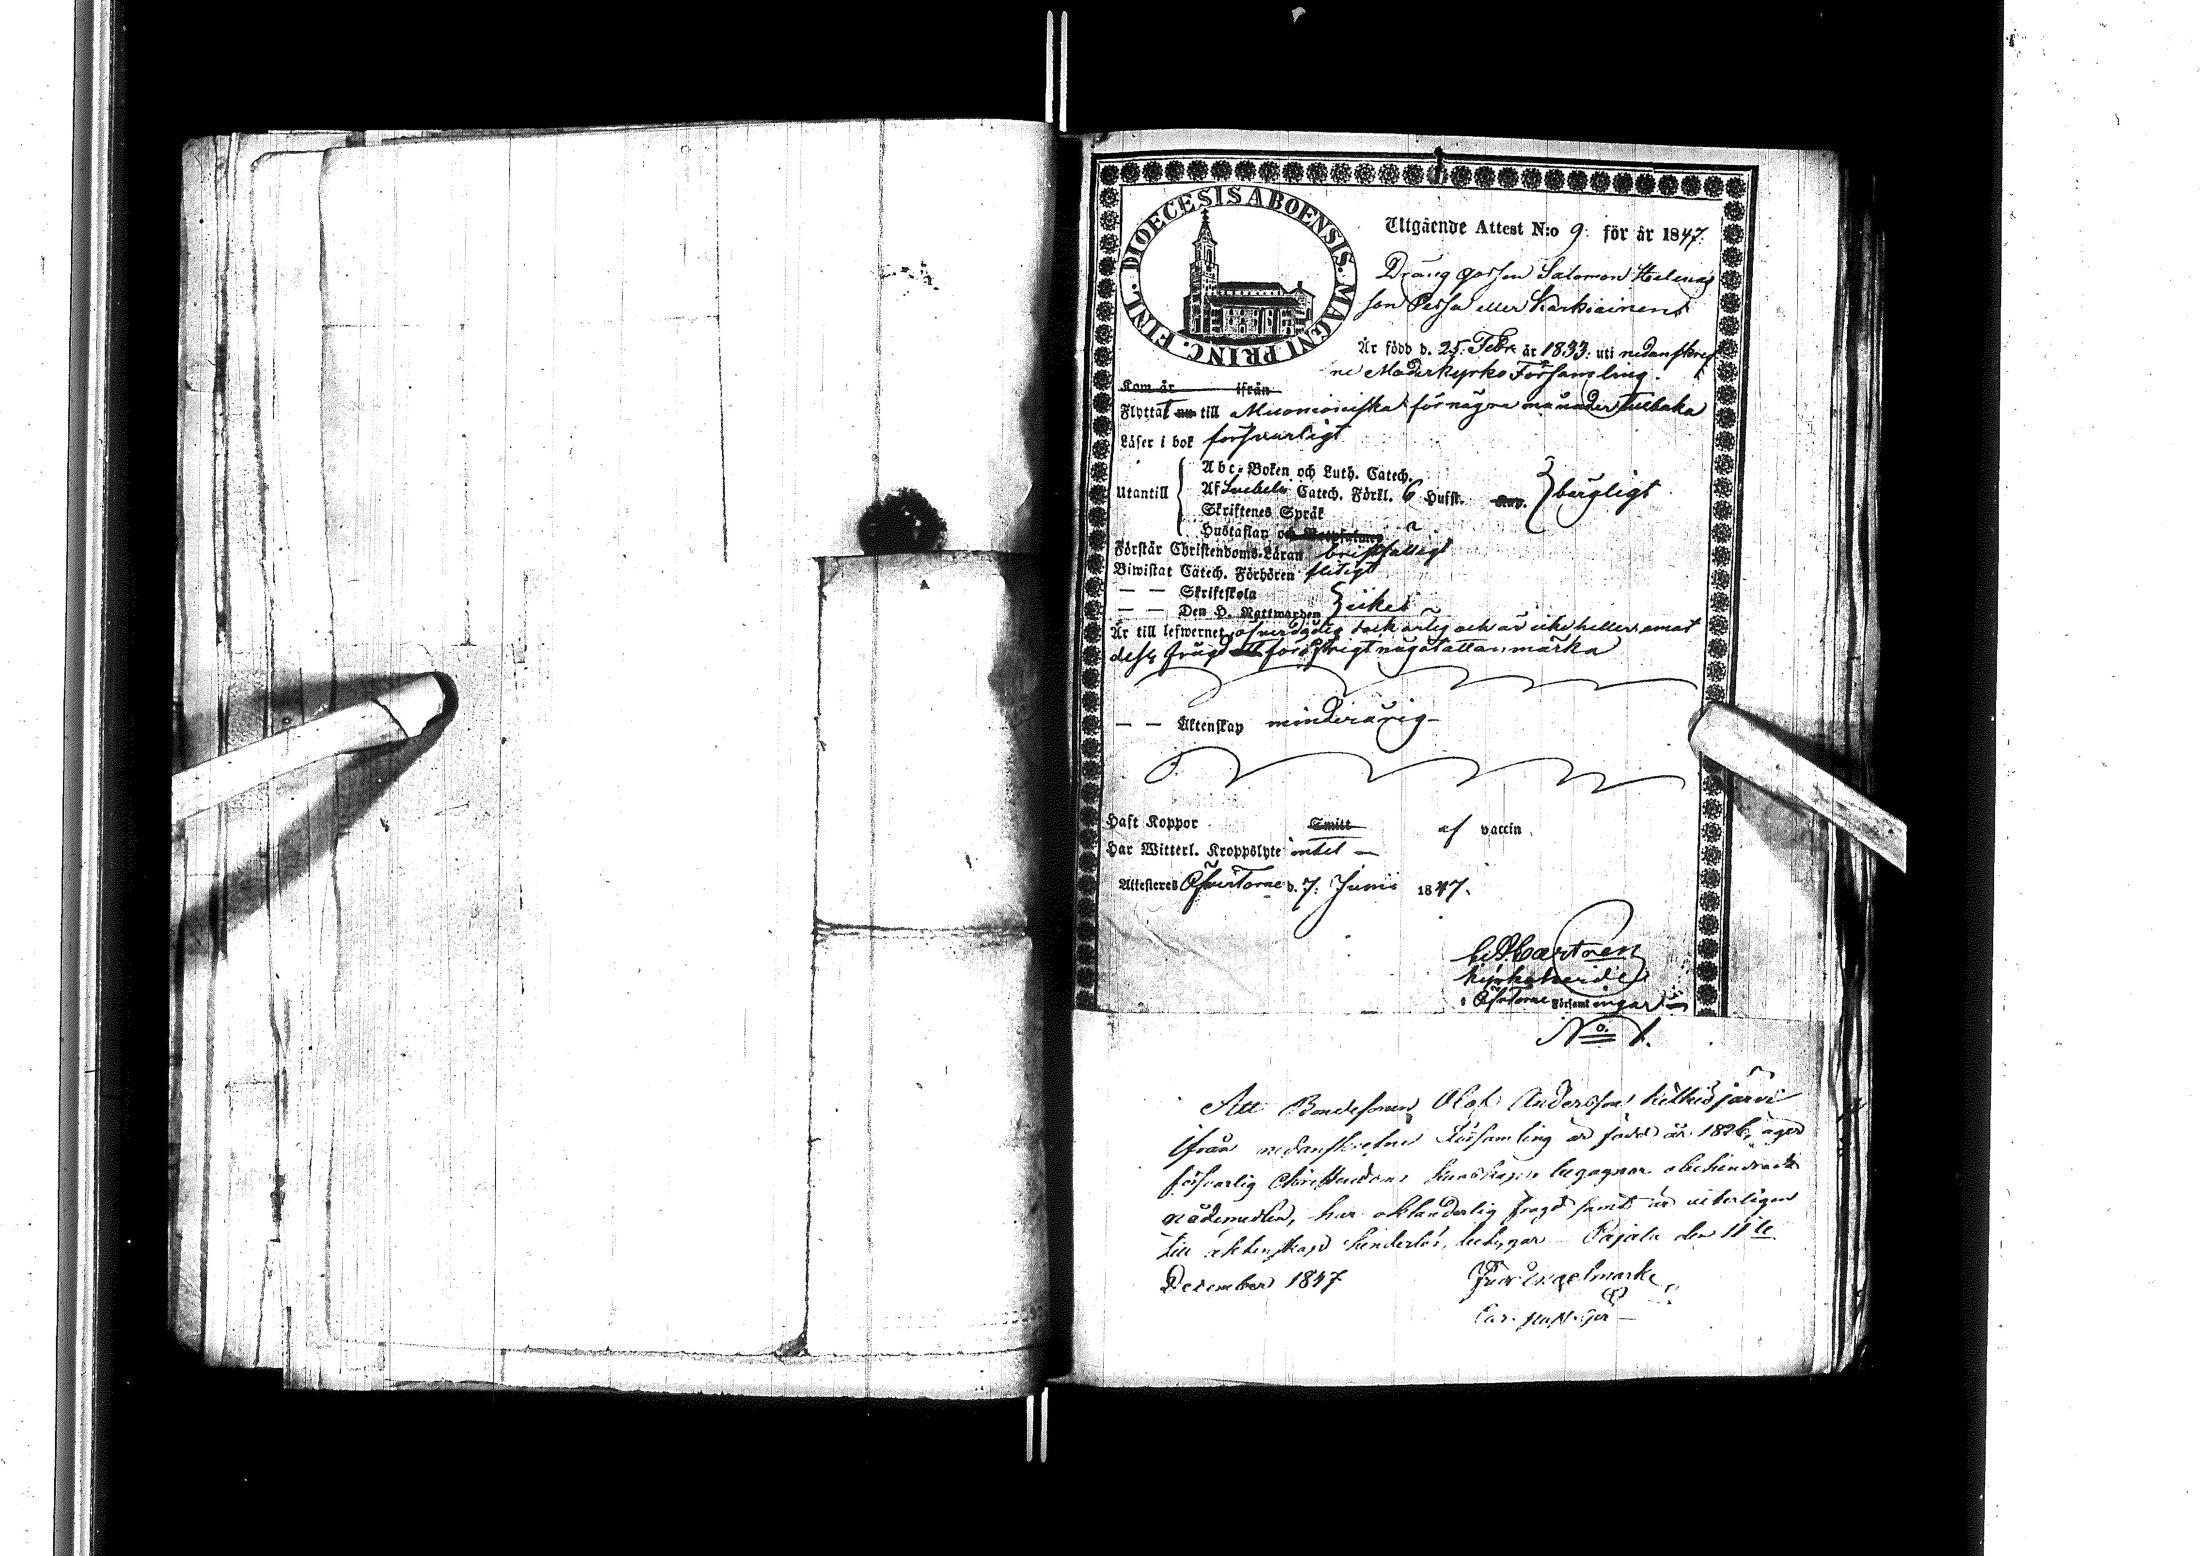 DIOECESIS ABOENSIS. MAGNI PRINC. FINL.
Utgående Attest N:o 9. för år 1847.
Dräng gossen Salomon Helenas
son Pessa eller Karkiainen
Är född d. 25. Febr. år 1833. uti nedanskref
ne Moderkyrko Församling.
Kom år ifrån
Flyttat till Muonioniska för några månader tillbaka
Läser i bok försvarligt
Utantill
Abc-Boken och Luth. Catech.
Af Svebeli Catech. Förkl. 6 Hufst. Kap.
Skriftenes Språk
Hustaflan och
bärgligt
Förstår Christendoms-Läran bristfälligt
Biwistat Catech. Förhören flitigt
— — Skriftskola
— — Den H. Nattwarden
icke
Är till lefwernet ärlig och är icke heller emot
dess frägd för öfrigt något att anmärka
— — Äktenskap minderårig
Haft Koppor Smitt af vaccin
Har Witterl. Kroppslyte intet —
Attesteras ÖfverTorne d. 7. Junii 1847.
Kyrkoherde
i ÖfverTorne Församlingar
No. 1.
Att Bondesonen Olof Andersson Kitkisjärvi
ifrån nedanskrefne Församling är född år 1826, äger
försvarlig Christendoms kunskap, begagnar obehindradt
nådemedlen, har oklanderlig frägd samt är veterligen
till äktenskap hinderlös, betygar Pajala den 11te
December 1847
Engelmark